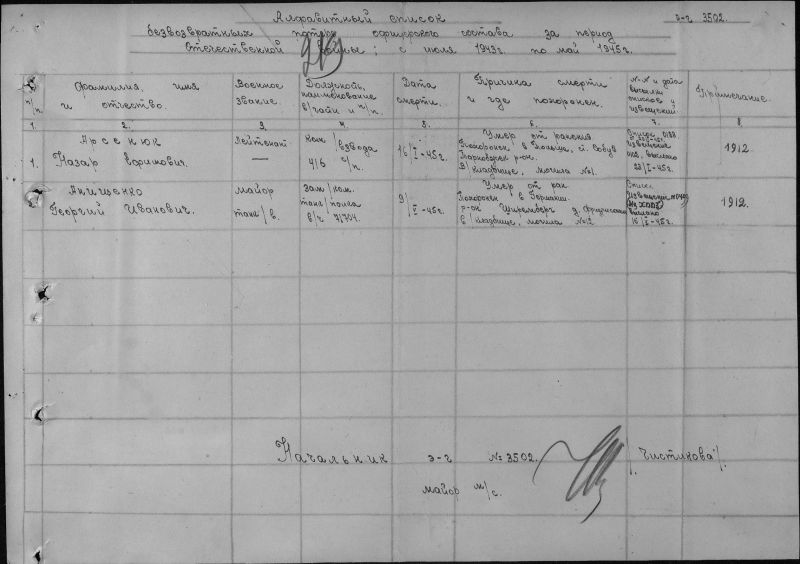 Алфавитный список
э-г 3502.
безвозвратных потерь офицерского состава за период
Отечественной войны: с июля 1943г. по май 1945г.
п/п.
Фамилия, имя
и отчество.
Военное
звание.
Должность,
наименование
в/части и п/п.
Дата
смерти.
Причина смерти
и где похоронен.
N-N и дата
высылки
списков и
извещений
Примечание.
1. 2. 3. 4. 5. 6. 7. 8.
1.
Арсенюк
Назар
Лейтенант
ком/взвода
416 с/п.
16/I-45г.
Умер от ранения
Похоронен в Польша,
р-он.
кладбище, могила №1.
Список 0188
Извещение
выслано
22/I-45г.
1912
2.
Анищенко
Георгий Иванович.
майор
танк/в.
зам/ком.
танк/полка
в/ч
9/V-45г.
Умер от ран.
Похоронен в Германии
р-он д.
в/кладбище, могила №12
Список
Извещение
выслано
1912.
Начальник э-г №3502.
майор м/с.
/Чистякова/.